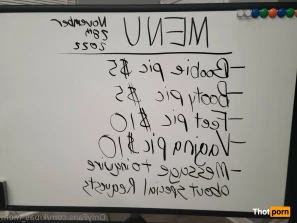 MENU
November
28th
2022
-Boobie pic $5
-Booty pic $5
-Feet pic $10
-Vagina pic $10
-Message to inquire
about special Requests
Thotporn